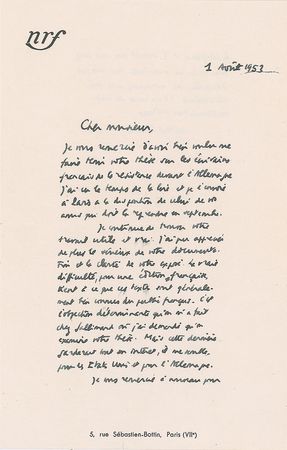 nrf
1 Août 1953
Cher monsieur,
Je vous remercie d'avoir bien voulu me
faire tenir votre thèse sur les écrivains
français de la résistance devant l'Allemagne
J'ai eu le temps de la lire et je l'envoie
à Paris à la disposition de celui de vos
amis qui doit la reprendre en septembre.
Je continue de trouver votre
travail utile et vrai. J'ai pu apprécier
de plus le sérieux de votre documentation
et la clarté de votre exposé. La vraie
difficulté, pour une édition française,
tient à ce que ces textes sont générale-
ment bien connus du public français. C'est
l'objection déterminante qu'on m'a faite
chez Gallimard où j'ai demandé qu'on
examine votre thèse. Mais cette dernière
garderait tout son intérêt, il me semble,
pour les États Unis et pour l'Allemagne.
Je vous remercie à nouveau pour
5, rue Sébastien-Bottin, Paris (VIIe)